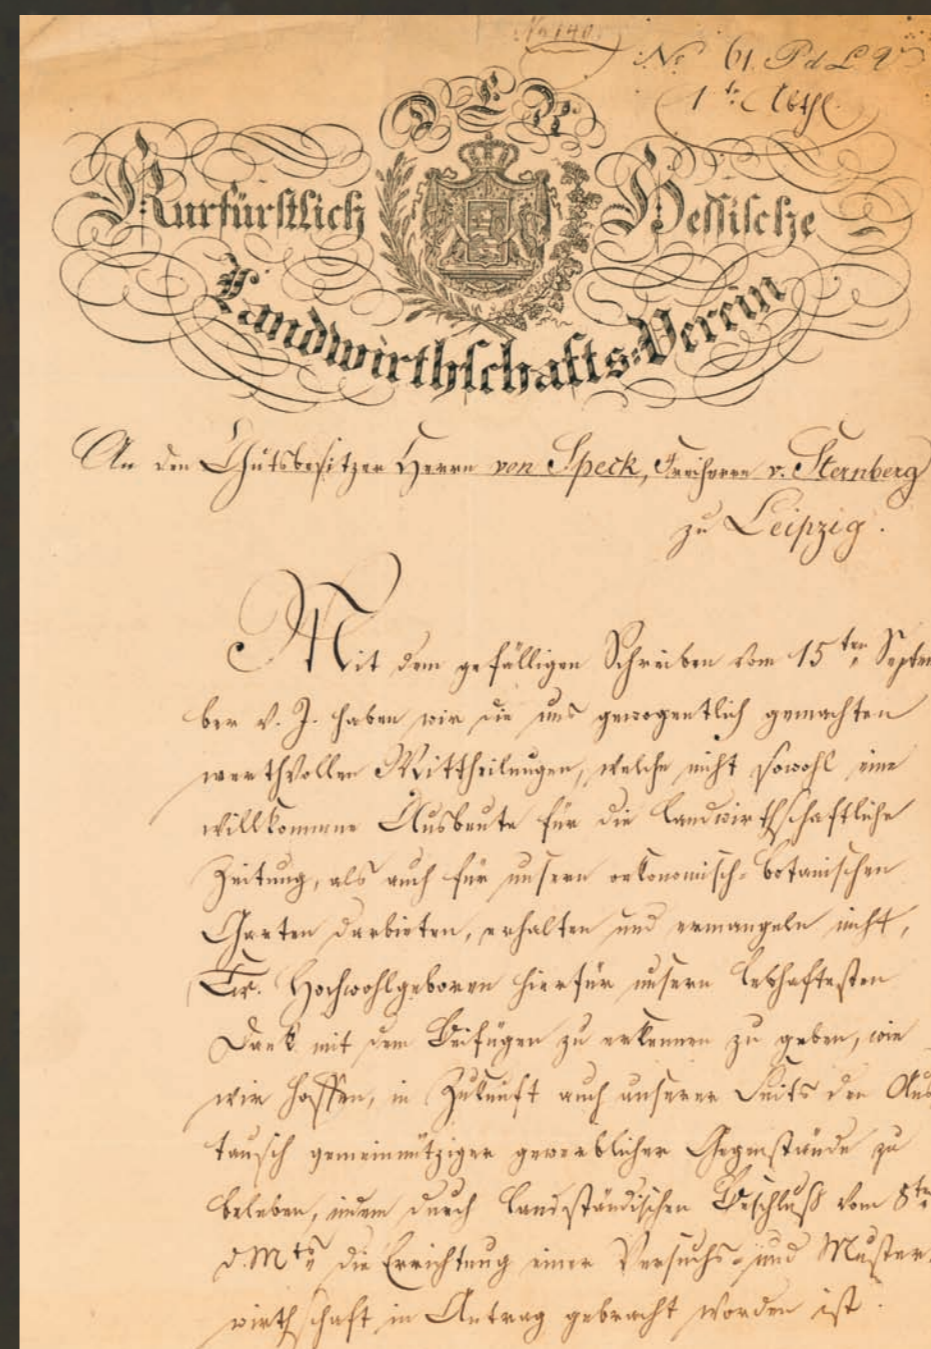 No 140.
No 61. P d L V
1te Abthl.
DER
Kurfürstlich Hessische
Landwirthschafts-Verein
An den Gutsbesitzer Herrn von Speck, Freiherrn v. Sternberg
zu Leipzig.
Mit dem gefälligen Schreiben vom 15ten Septem
ber v. J. haben wir die uns gewogentlich gemachten
werthvollen Mittheilungen, welche nicht sowohl eine
willkommne Ausbeute für die landwirthschaftliche
Zeitung, als auch für unsern oekonomisch-botanischen
Garten darbieten, erhalten und ermangeln nicht,
Ew. Hochwohlgeboren hierfür unsern lebhaftesten
Dank mit dem Beifügen zu erkennen zu geben, wie
wir hoffen, in Zukunft auch unserer Seits den Aus
tausch gemeinnütziger gewerblicher Gegenstände zu
beleben, indem durch landständischen Beschluß vom 8ten
d. Mts die Errichtung einer Versuchs- und Muster-
wirthschaft in Antrag gebracht worden ist.